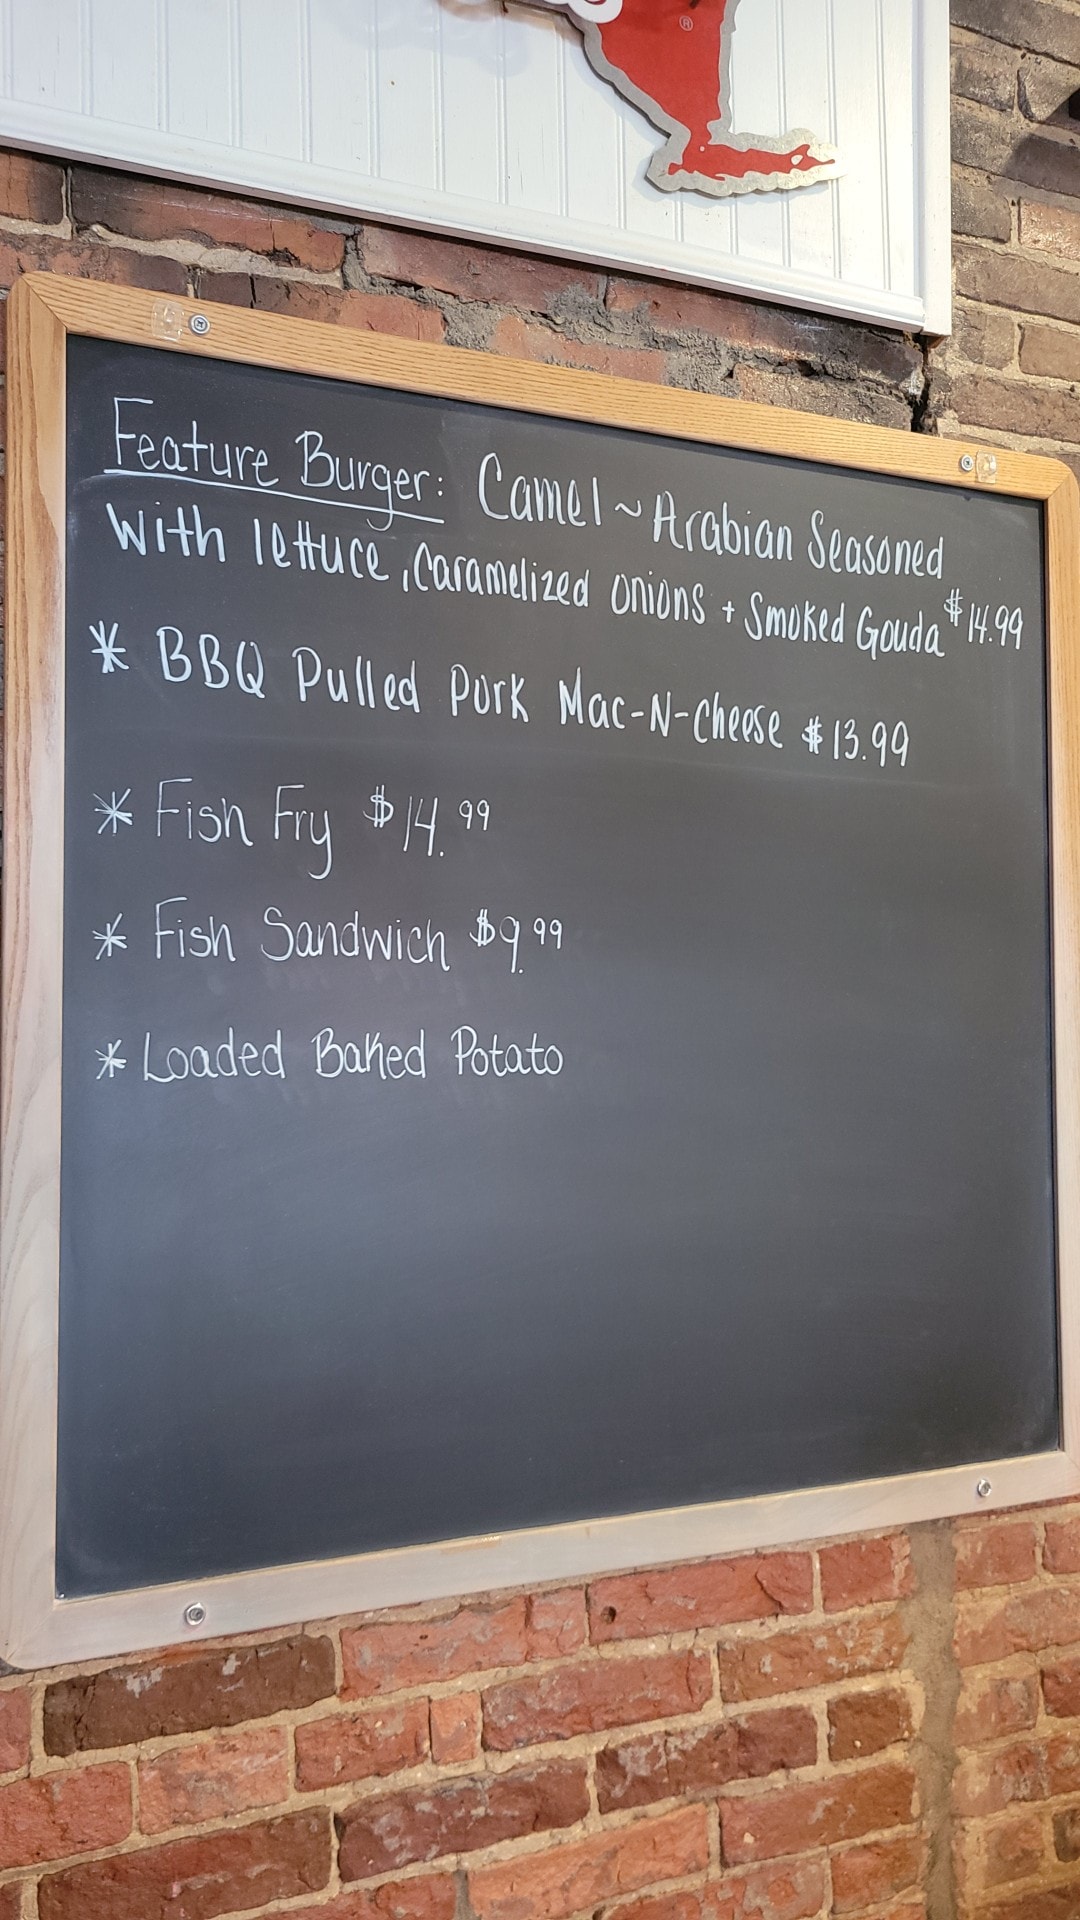 ®
Feature Burger: Camel ~ Arabian Seasoned
With lettuce, Caramelized onions + Smoked Gouda $14.99
* BBQ Pulled Pork Mac-N-Cheese $13.99
* Fish Fry $14.99
* Fish Sandwich $9.99
* Loaded Baked Potato